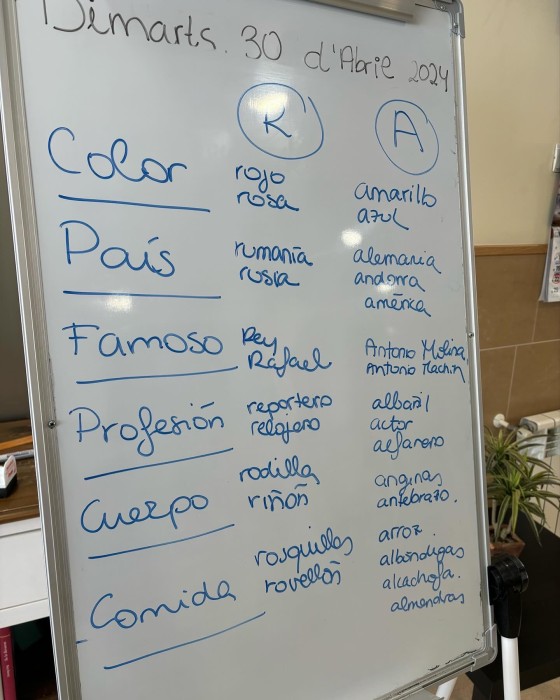 Dimarts. 30 d'Abrie 2024
R A
Color
rojo
rosa
amarillo
azul
País
rumanía
rusia
alemania
andorra
américa
Famoso
Rey
Rafael
Antonio Molina
Antonio Machin
Profesión
reportero
relojero
albañil
actor
alfarero
Cuerpo
rodilla
riñón
anginas
antebrazo.
Comida
rosquillas
rovellôs
arroz.
albóndigas
alcachofa.
almendras